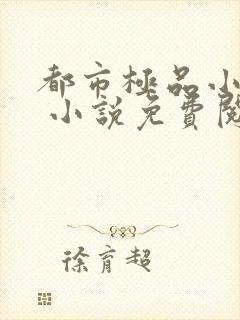 都市極品小
小說免費閱
徐育超